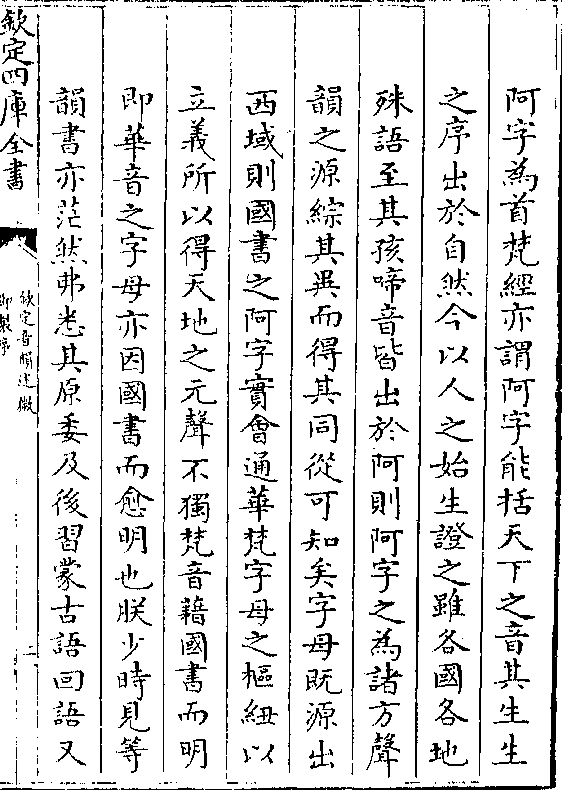 阿字為首梵經亦謂阿字能括天下之音其生生
之序出於自然今以人之始生證之雖各國各地
殊語至其孩啼音皆出於阿則阿字之為諸方聲
韻之源綜其異而得其同從可知矣字母既源出
西域則國書之阿字實會通華梵字母之樞紐以
立義所以得天地之元聲不獨梵音藉國書而明
即華音之字母亦因國書而愈明也朕少時見等
韻書亦茫然弗悉其原委及後習蒙古語回語又
欽定四庫全書
欽定音韻述微
御製序
二